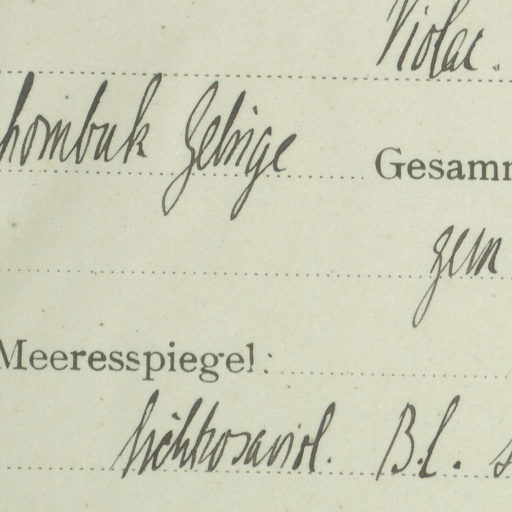 Violac.
hombuk Gebirge Gesamm
gem
Meeresspiegel:
lichtrosaviol. B.l. s